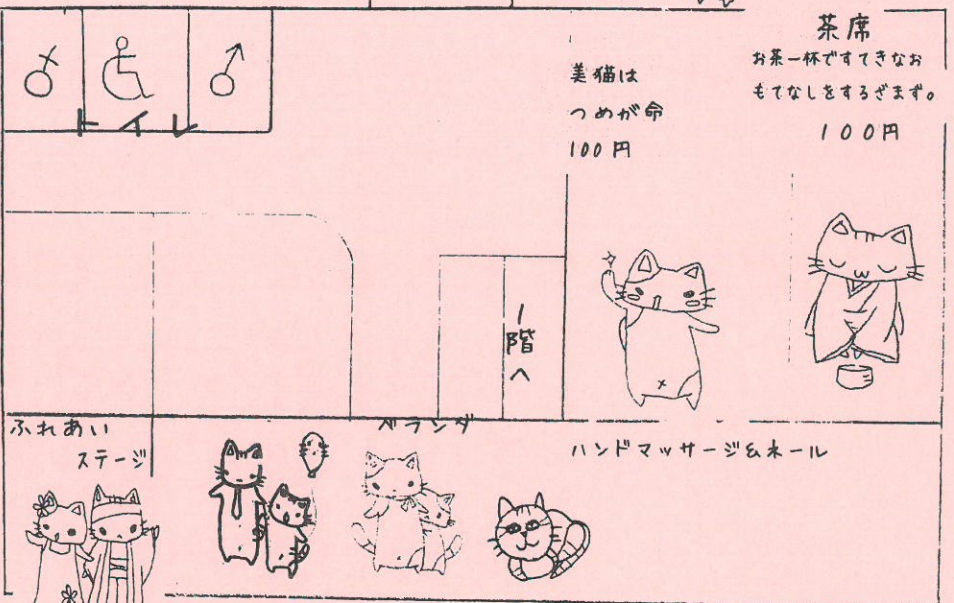 トイレ
美猫は
つめが命
100円
茶席
お茶一杯ですてきなお
もてなしをするざます。
100円
1階へ
ふれあい
ステージ
ベランダ
ハンドマッサージ&ネール